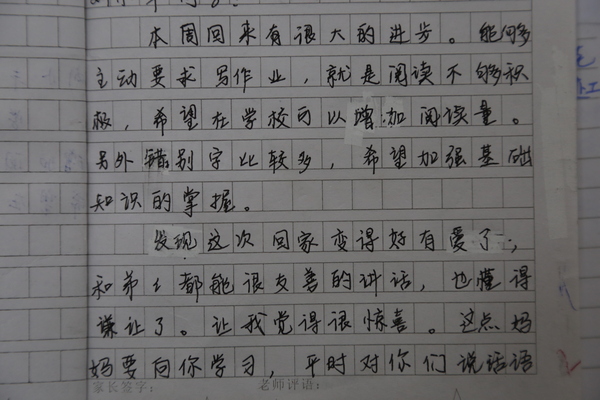 本周回来有很大的进步。能够
主动要求写作业，就是阅读不够积
极，希望在学校可以增加阅读量。
另外错别字比较多，希望加强基础
知识的掌握。
发现这次回家变得好有爱了，
和弟弟都能很友善的讲话，也懂得
谦让了。让我觉得很惊喜。这点妈
妈要向你学习，平时对你们说话语
家长签字：
老师评语：